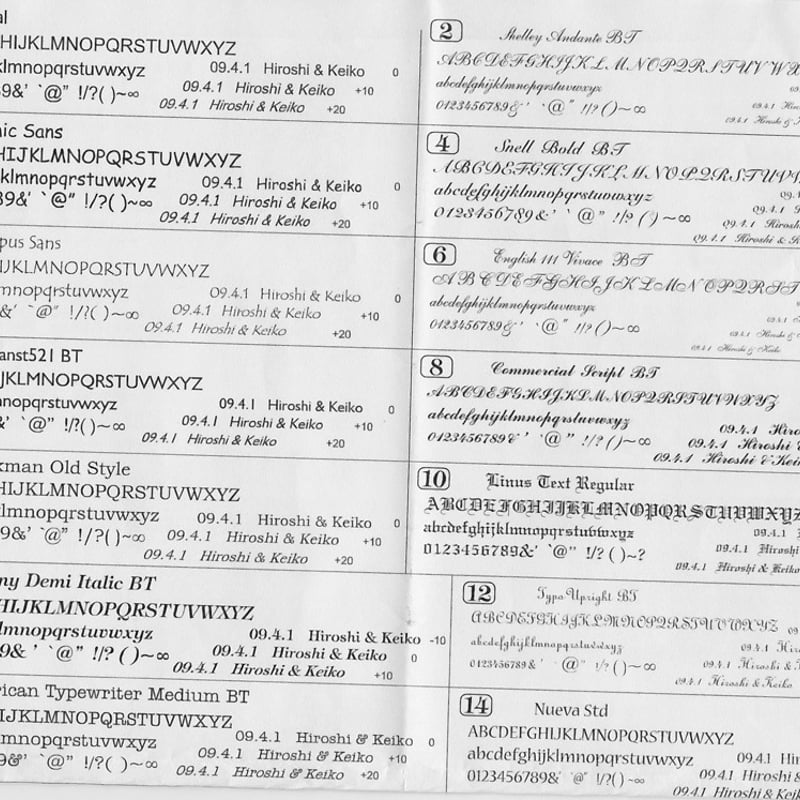 HIJKLMNOPQRSTUVWXYZ
klmnopqrstuvwxyz 09.4.1 Hiroshi & Keiko 0
89&' `@" !/?( )~∞ 09.4.1 Hiroshi & Keiko +10
09.4.1 Hiroshi & Keiko +20
Sans
HIJKLMNOPQRSTUVWXYZ
klmnopqrstuvwxyz 09.4.1 Hiroshi & Keiko 0
89&' `@" !/?( )~∞ 09.4.1 Hiroshi & Keiko +10
09.4.1 Hiroshi & Keiko +20
pus Sans
IJKLMNOPQRSTUVWXYZ
mnopqrstuvwxyz 09.4.1 Hiroshi & Keiko 0
&' `@" !/?( )~∞ 09.4.1 Hiroshi & Keiko +10
09.4.1 Hiroshi & Keiko +20
anst521 BT
JKLMNOPQRSTUVWXYZ
nopqrstuvwxyz 09.4.1 Hiroshi & Keiko 0
&' `@" !/?( )~∞ 09.4.1 Hiroshi & Keiko +10
09.4.1 Hiroshi & Keiko +20
kman Old Style
HIJKLMNOPQRSTUVWXYZ
lmnopqrstuvwxyz 09.4.1 Hiroshi & Keiko 0
89&' `@" !/?( )~∞ 09.4.1 Hiroshi & Keiko +10
09.4.1 Hiroshi & Keiko +20
ny Demi Italic BT
HIJKLMNOPQRSTUVWXYZ
lmnopqrstuvwxyz 09.4.1 Hiroshi & Keiko -10
9&' `@" !/? ( )~∞ 09.4.1 Hiroshi & Keiko 0
09.4.1 Hiroshi & Keiko +10
rican Typewriter Medium BT
IJKLMNOPQRSTUVWXYZ
mnopqrstuvwxyz 09.4.1 Hiroshi & Keiko 0
9&' `@" !/?( )~∞ 09.4.1 Hiroshi & Keiko +10
09.4.1 Hiroshi & Keiko +20
2 Shelley Andante BT
ABCDEFGHIJKLMNOPQRSTUVWX
abcdefghijklmnopqrstuvwxyz
0123456789&' `@" !/? ( )~∞ 09.4.1
09.4.1 Hiroshi &
4 Snell Bold BT
ABCDEFGHIJKLMNOPQRSTUVW
abcdefghijklmnopqrstuvwxyz 09.4.1
0123456789&' `@" !/? ( )~∞ 09.4.1 Hirosh
09.4.1 Hiroshi &
6 English 111 Vivace BT
ABCDEFGHIJKLMNOPQRST
abcdefghijklmnopqrstuvwxyz
0123456789&' `@" !/? ( )~∞ 09.4.1 Hiroshi &
09.4.1 Hiroshi & Keiko
8 Commercial Script BT
ABCDEFGHIJKLMNOPQRSTUVWXYZ
abcdefghijklmnopqrstuvwxyz 09.4.1 Hiro
0123456789&' `@" !/? ( )~∞ 09.4.1 Hiroshi
09.4.1 Hiroshi & Kei
10 Linus Text Regular
ABCDEFGHIJKLMNOPQRSTUVWXYZ
abcdefghijklmnopqrstuvwxyz 09.4.1 Hi
0123456789&' `@" !/? ( )~? 09.4.1 Hiroshi
09.4.1 Hiroshi & Keiko
12 Typo Upright BT
ABCDEFGHIJKLMNOPQRSTUVWXYZ 09
abcdefghijklmnopqrstuvwxyz 09.4.1 Hi
0123456789&' `@" !/? ( )~∞ 09.4.1 Hiroshi &
09.4.1 Hiroshi & Keiko
14 Nueva Std
ABCDEFGHIJKLMNOPQRSTUVWXYZ
abcdefghijklmnopqrstuvwxyz 09.4.1 Hi
0123456789&' `@" !/?( )~∞ 09.4.1 Hiroshi
09.4.1 Hiroshi & Keiko